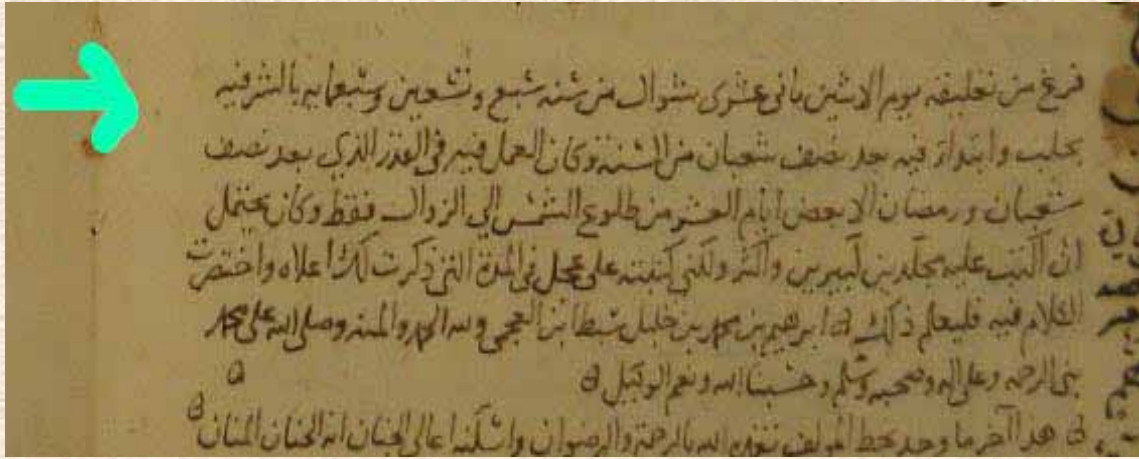 فرغ من تعليقه يوم الاثنين ثاني عشرى شوال من سنه سبع وتسعين وسبعمايه بالشرفيه
بحلب وابتدات فيه بعد نصف شعبان من السنه وكان العمل فيه في القدر الذي بعد نصف
شعبان ورمضان الا بعض ايام العشر من طلوع الشمس الي الزوال فقط وكان يحتمل
ان اكتب عليه مجلدين كبيرين واكثر ولكني كتبته على عجل في المدة التي ذكرت لك اعلاه واختصرت
الكلام فيه فليعلم ذلك ابرهيم بن محمد بن خليل سبط ابن العجمي ولله الحمد والمنه وصلى الله على محمد
نبي الرحمه وعلى اله وصحبه وسلم وحسبنا الله ونعم الوكيل
هذا آخر ما وجد بخط المولف تغمده الله بالرحمة والرضوان واسكنه اعالي الجنان انه الحنان المنان